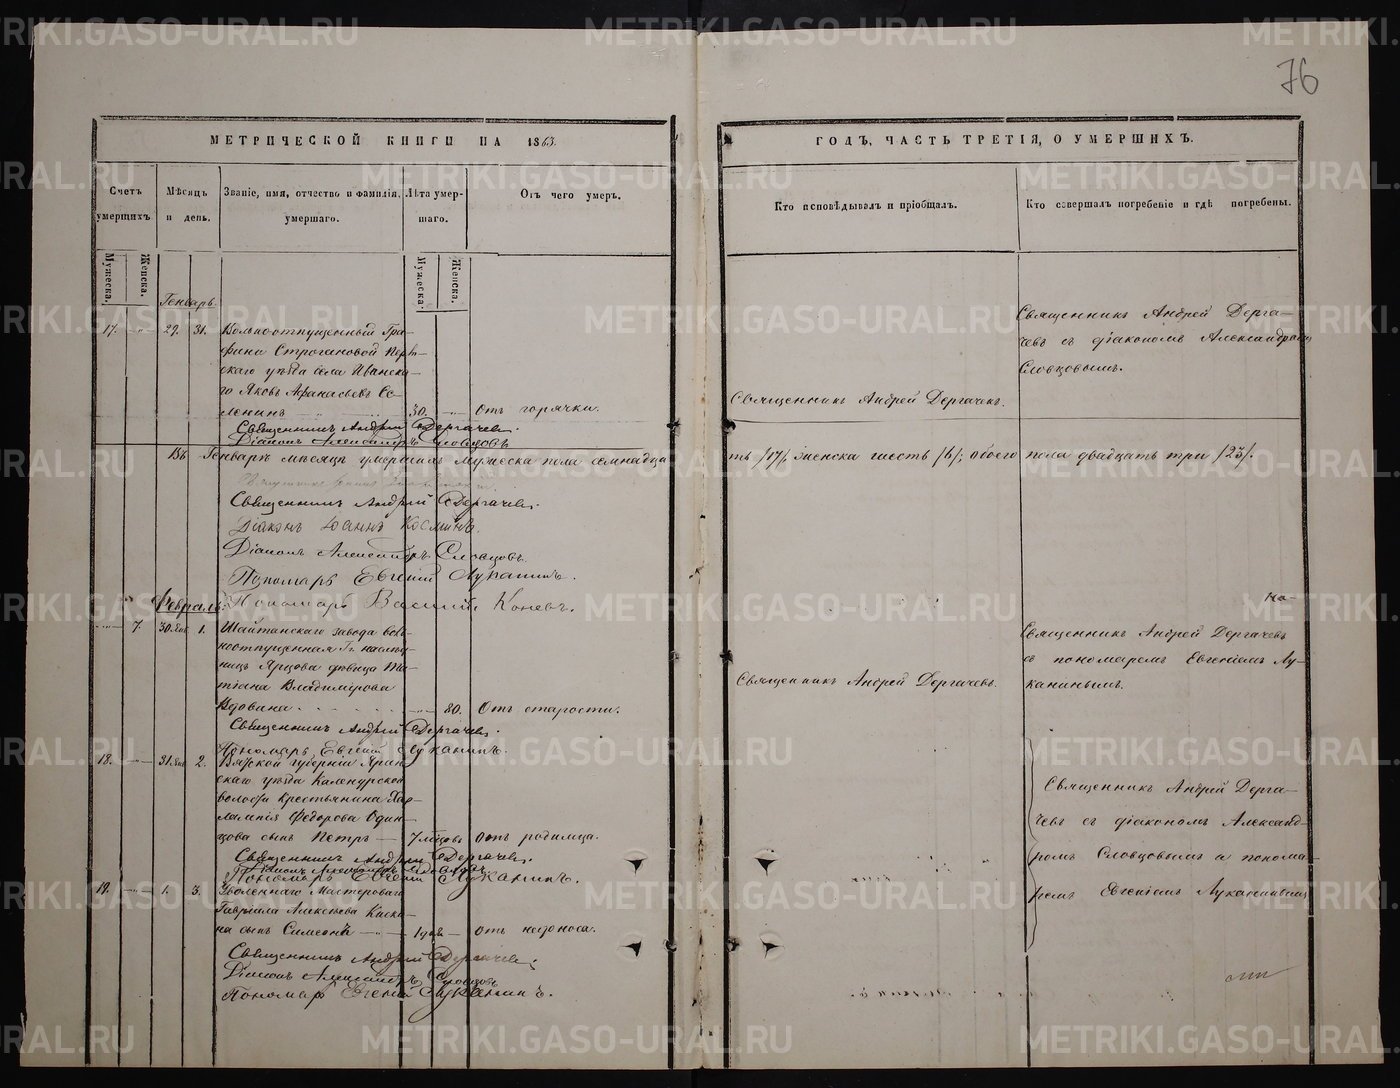 76
МЕТРИЧЕСКОЙ КНИГИ НА 1863.
ГОДЪ, ЧАСТЬ ТРЕТІЯ, О УМЕРШИХЪ.
Счетъ умершихъ.
Мѣсяцъ и день.
Званіе, имя, отчество и фамилія, умершаго.
Лѣта умершаго.
Отъ чего умеръ.
Кто исповѣдывалъ и пріобщалъ.
Кто совершалъ погребеніе и гдѣ погребены.
Мужеска.
Женска.
Мужеска.
Женска.
Генварь.
17. " 29. 31. Вольноотпущенный Гра-
фини Строгановой Перм-
скаго уѣзда села Иванска-
го Яковъ Афанасьевъ Се-
ленинъ 30. Отъ горячки.
Священникъ Андрей Дергачевъ.
Священникъ Андрей Дерга-
чевъ съ діакономъ Александромъ
Словцовымъ.
Священникъ Андрей Дергачевъ.
Діаконъ Александръ Словцовъ
Въ Генварѣ мѣсяцѣ умершихъ мужеска пола семнадца
ть /17/, женска шесть /6/; обоего пола двадцать три /23/.
Священникъ Андрей Дергачевъ.
Діаконъ Іоаннъ Косминъ.
Діаконъ Александръ Словцовъ.
Пономарь Евгеній Луканинъ.
Пономарь Василій Коневъ.
Февраль.
7. 30. 1. Шайтанскаго завода воль-
ноотпущенная Гг. наслѣд-
ницъ Ярцова дѣвица Та-
тіана Владимірова
Вдовина 80. Отъ старости.
Священникъ Андрей Дергачевъ.
Священникъ Андрей Дергачевъ
съ пономаремъ Евгеніемъ Лу-
канинымъ.
Священникъ Андрей Дергачевъ.
Пономарь Евгеній Луканинъ.
18. 31. 2. Вятской губерніи Яран-
скаго уѣзда
волости крестьянина Хар-
лампія Ѳедорова Один-
цова сынъ Петръ 7 мѣсцовъ Отъ родимца.
Священникъ Андрей Дергачевъ.
Діаконъ Александръ Словцовъ
Пономарь Евгеній Луканинъ.
19. 1. 3. Уволеннаго Мастероваго
Гавріила Алексѣева
на сынъ Симеонъ Отъ недоноса.
Священникъ Андрей Дерга-
чевъ съ діакономъ Александ-
ромъ Словцовымъ и понома-
ремъ Евгеніемъ Луканинымъ
Священникъ Андрей Дергачевъ.
Діаконъ Александръ Словцовъ
Пономарь Евгеній Луканинъ.
METRIKI.GASO-URAL.RU